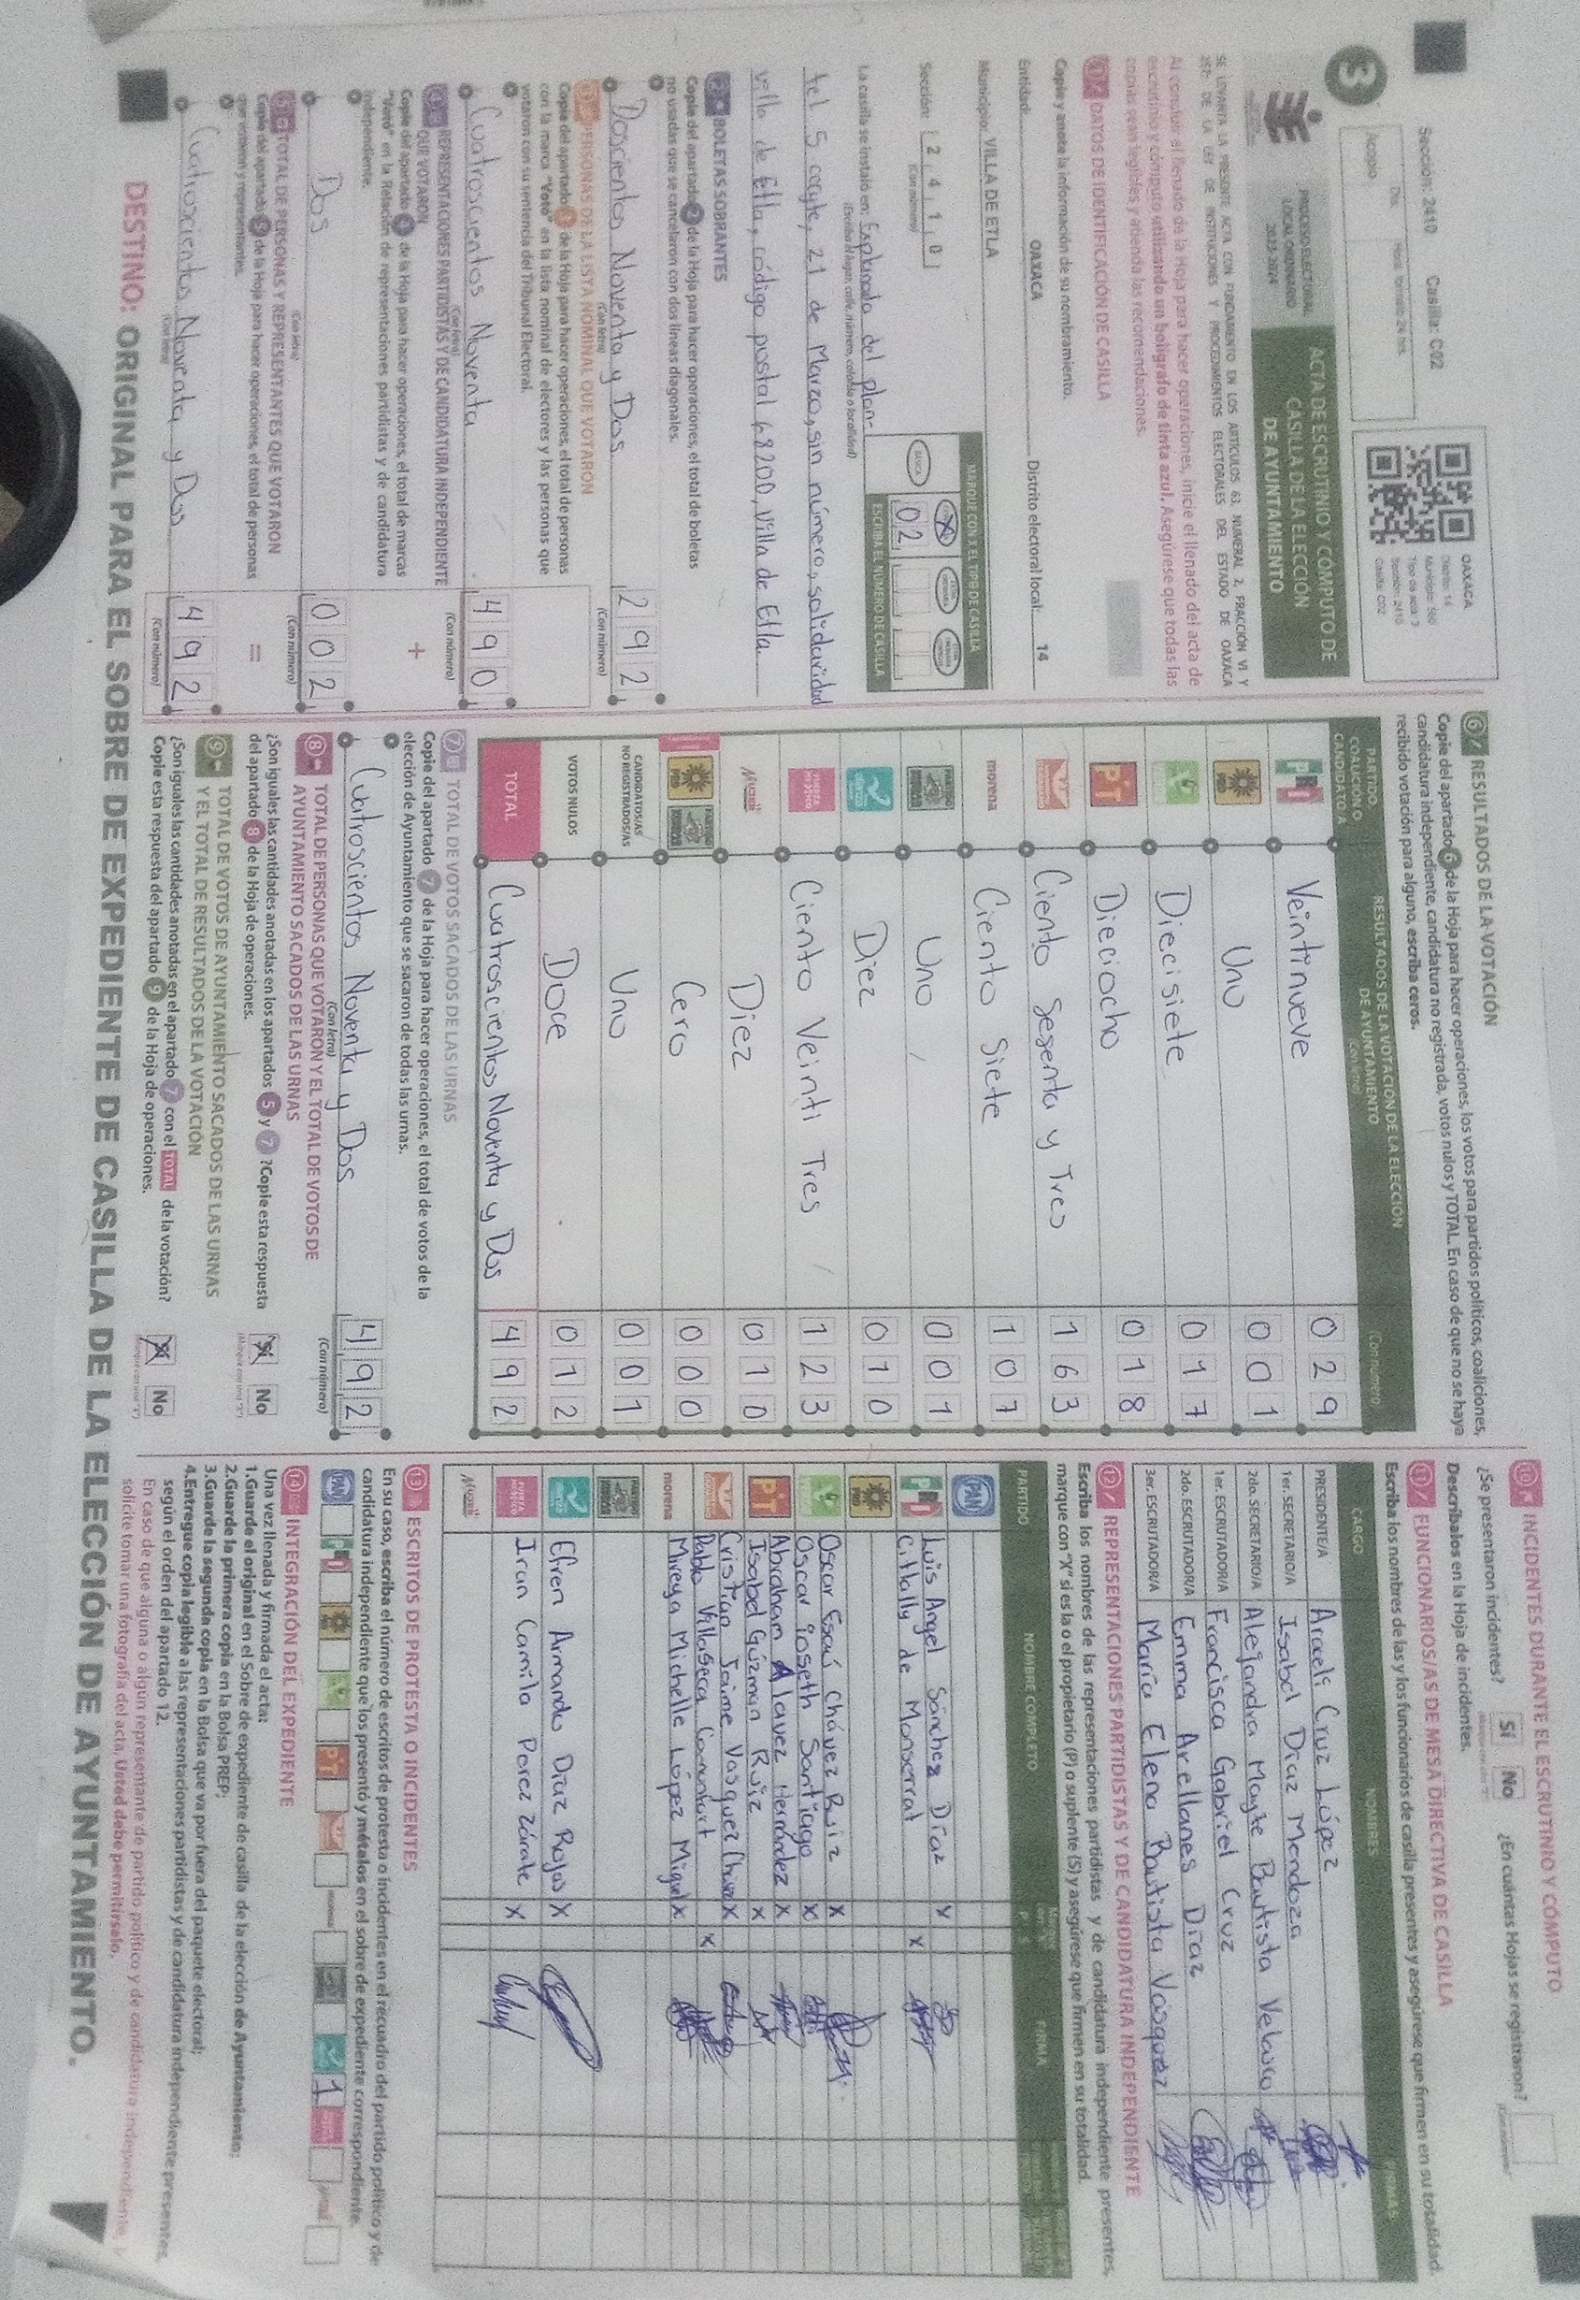 3
Sección: 2410 Casilla: C02
Acopio
Día: Hora: formato 24 hrs.
OAXACA
Distrito: 14
Municipio: 580
Tipo de acta: 3
Sección: 2410
Casilla: C02
PROCESO ELECTORAL
LOCAL ORDINARIO
2023-2024
ACTA DE ESCRUTINIO Y CÓMPUTO DE
CASILLA DE LA ELECCIÓN
DE AYUNTAMIENTO
Al concluir el llenado de la Hoja para hacer operaciones, inicie el llenado del acta de
escrutinio y cómputo utilizando un bolígrafo de tinta azul. Asegúrese que todas las
copias sean legibles y atienda las recomendaciones.
1 DATOS DE IDENTIFICACIÓN DE CASILLA
Copie y anote la información de su nombramiento.
Entidad: OAXACA Distrito electoral local: 14
Municipio: VILLA DE ETLA
Sección: 2 4 1 0
(Con número)
MARQUE CON X EL TIPO DE CASILLA
BÁSICA
X
ESCRIBA EL NÚMERO DE CASILLA
02
La casilla se instaló en: Explanada del plan-
(Escriba el lugar, calle, número, colonia o localidad)
tel 5 cocyte, 21 de Marzo, sin número, solidaridad
villa de Etla, código postal 68200, Villa de Etla.
2 BOLETAS SOBRANTES
Copie del apartado 2 de la Hoja para hacer operaciones, el total de boletas
no usadas que se cancelaron con dos líneas diagonales.
Doscientos Noventa y Dos 2 9 2
(Con letra) (Con número)
3 PERSONAS DE LA LISTA NOMINAL QUE VOTARON
Copie del apartado 3 de la Hoja para hacer operaciones, el total de personas
con la marca "Votó" en la lista nominal de electores y las personas que
votaron con su sentencia del Tribunal Electoral.
Cuatroscientos Noventa 4 9 0
(Con letra) (Con número)
4 REPRESENTACIONES PARTIDISTAS Y DE CANDIDATURA INDEPENDIENTE
QUE VOTARON
Copie del apartado 4 de la Hoja para hacer operaciones, el total de marcas
"Votó" en la Relación de representaciones partidistas y de candidatura
independiente.
+
Dos 0 0 2
(Con letra) (Con número)
5 TOTAL DE PERSONAS Y REPRESENTANTES QUE VOTARON
Copie del apartado 5 de la Hoja para hacer operaciones, el total de personas
que votaron y representantes.
=
Cuatroscientos Noventa y Dos 4 9 2
(Con letra) (Con número)
6 RESULTADOS DE LA VOTACIÓN
Copie del apartado 6 de la Hoja para hacer operaciones, los votos para partidos políticos, coaliciones,
candidatura independiente, candidatura no registrada, votos nulos y TOTAL. En caso de que no se haya
recibido votación para alguno, escriba ceros.
PARTIDO,
COALICIÓN O
CANDIDATO/A
RESULTADOS DE LA VOTACIÓN DE LA ELECCIÓN
DE AYUNTAMIENTO
(Con letra)
(Con número)
PRI Veintinueve 0 2 9
PRD Uno 0 0 1
Diecisiete 0 1 7
PT Dieciocho 0 1 8
Ciento Sesenta y Tres 1 6 3
morena Ciento Siete 1 0 7
Uno 0 0 1
Diez 0 1 0
FUERZA MÉXICO Ciento Veinti Tres 1 2 3
Mujer Diez 0 1 0
PRD Cero 0 0 0
CANDIDATOS/AS
NO REGISTRADOS/AS
Uno 0 0 1
VOTOS NULOS Doce 0 1 2
TOTAL Cuatroscientos Noventa y Dos 4 9 2
7 TOTAL DE VOTOS SACADOS DE LAS URNAS
Copie del apartado 7 de la Hoja para hacer operaciones, el total de votos de la
elección de Ayuntamiento que se sacaron de todas las urnas.
Cuatroscientos Noventa y Dos 4 9 2
(Con letra) (Con número)
8 TOTAL DE PERSONAS QUE VOTARON Y EL TOTAL DE VOTOS DE
AYUNTAMIENTO SACADOS DE LAS URNAS
¿Son iguales las cantidades anotadas en los apartados 5 y 7 ?Copie esta respuesta
del apartado 8 de la Hoja de operaciones.
X No
9 TOTAL DE VOTOS DE AYUNTAMIENTO SACADOS DE LAS URNAS
Y EL TOTAL DE RESULTADOS DE LA VOTACIÓN
¿Son iguales las cantidades anotadas en el apartado 7 con el TOTAL de la votación?
Copie esta respuesta del apartado 9 de la Hoja de operaciones.
X No
10 INCIDENTES DURANTE EL ESCRUTINIO Y CÓMPUTO
¿Se presentaron incidentes? Sí No ¿En cuántas Hojas se registraron?
Descríbalos en la Hoja de incidentes.
11 FUNCIONARIOS/AS DE MESA DIRECTIVA DE CASILLA
Escriba los nombres de las y los funcionarios de casilla presentes y asegúrese que firmen en su totalidad.
CARGO NOMBRES FIRMAS
PRESIDENTE/A Araceli Cruz López
1er. SECRETARIO/A Isabel Díaz Mendoza
2do. SECRETARIO/A Alejandra Mayte Bautista Velasco
1er. ESCRUTADOR/A Francisca Gabriel Cruz
2do. ESCRUTADOR/A Emma Arellanes Díaz
3er. ESCRUTADOR/A María Elena Bautista Vásquez
12 REPRESENTACIONES PARTIDISTAS Y DE CANDIDATURA INDEPENDIENTE
Escriba los nombres de las representaciones partidistas y de candidatura independiente presentes,
marque con "X" si es la o el propietario (P) o suplente (S) y asegúrese que firmen en su totalidad.
PARTIDO NOMBRE COMPLETO P S FIRMA
PAN
PRI Luis Angel Sánchez Díaz X
Citlally de Monserrat X
PRD
Oscar Esaú Chávez Ruiz X
Oscar Joseth Santiago X
PT Abraham Alavez Hernández X
Isabel Gúzman Ruiz X
Cristian Jaime Vasquez Chavez X
Pablo Villaseca Comonfort X
morena Mireya Michelle López Miguel X
Efren Armando Díaz Rojas X
FUERZA MÉXICO Iran Camilo Perez Zárate X
Mujer
13 ESCRITOS DE PROTESTA O INCIDENTES
En su caso, escriba el número de escritos de protesta o incidentes en el recuadro del partido político y de
candidatura independiente que los presentó y métalos en el sobre de expediente correspondiente.
PAN PRI PRD PT morena 1
14 INTEGRACIÓN DEL EXPEDIENTE
Una vez llenada y firmada el acta:
1.Guarde el original en el Sobre de expediente de casilla de la elección de Ayuntamiento;
2.Guarde la primera copia en la Bolsa PREP;
3.Guarde la segunda copia en la Bolsa que va por fuera del paquete electoral;
4.Entregue copia legible a las representaciones partidistas y de candidatura independiente presentes,
según el orden del apartado 12.
En caso de que alguna o algún representante de partido político y de candidatura independiente
solicite tomar una fotografía del acta, Usted debe permitírselo.
DESTINO: ORIGINAL PARA EL SOBRE DE EXPEDIENTE DE CASILLA DE LA ELECCIÓN DE AYUNTAMIENTO.